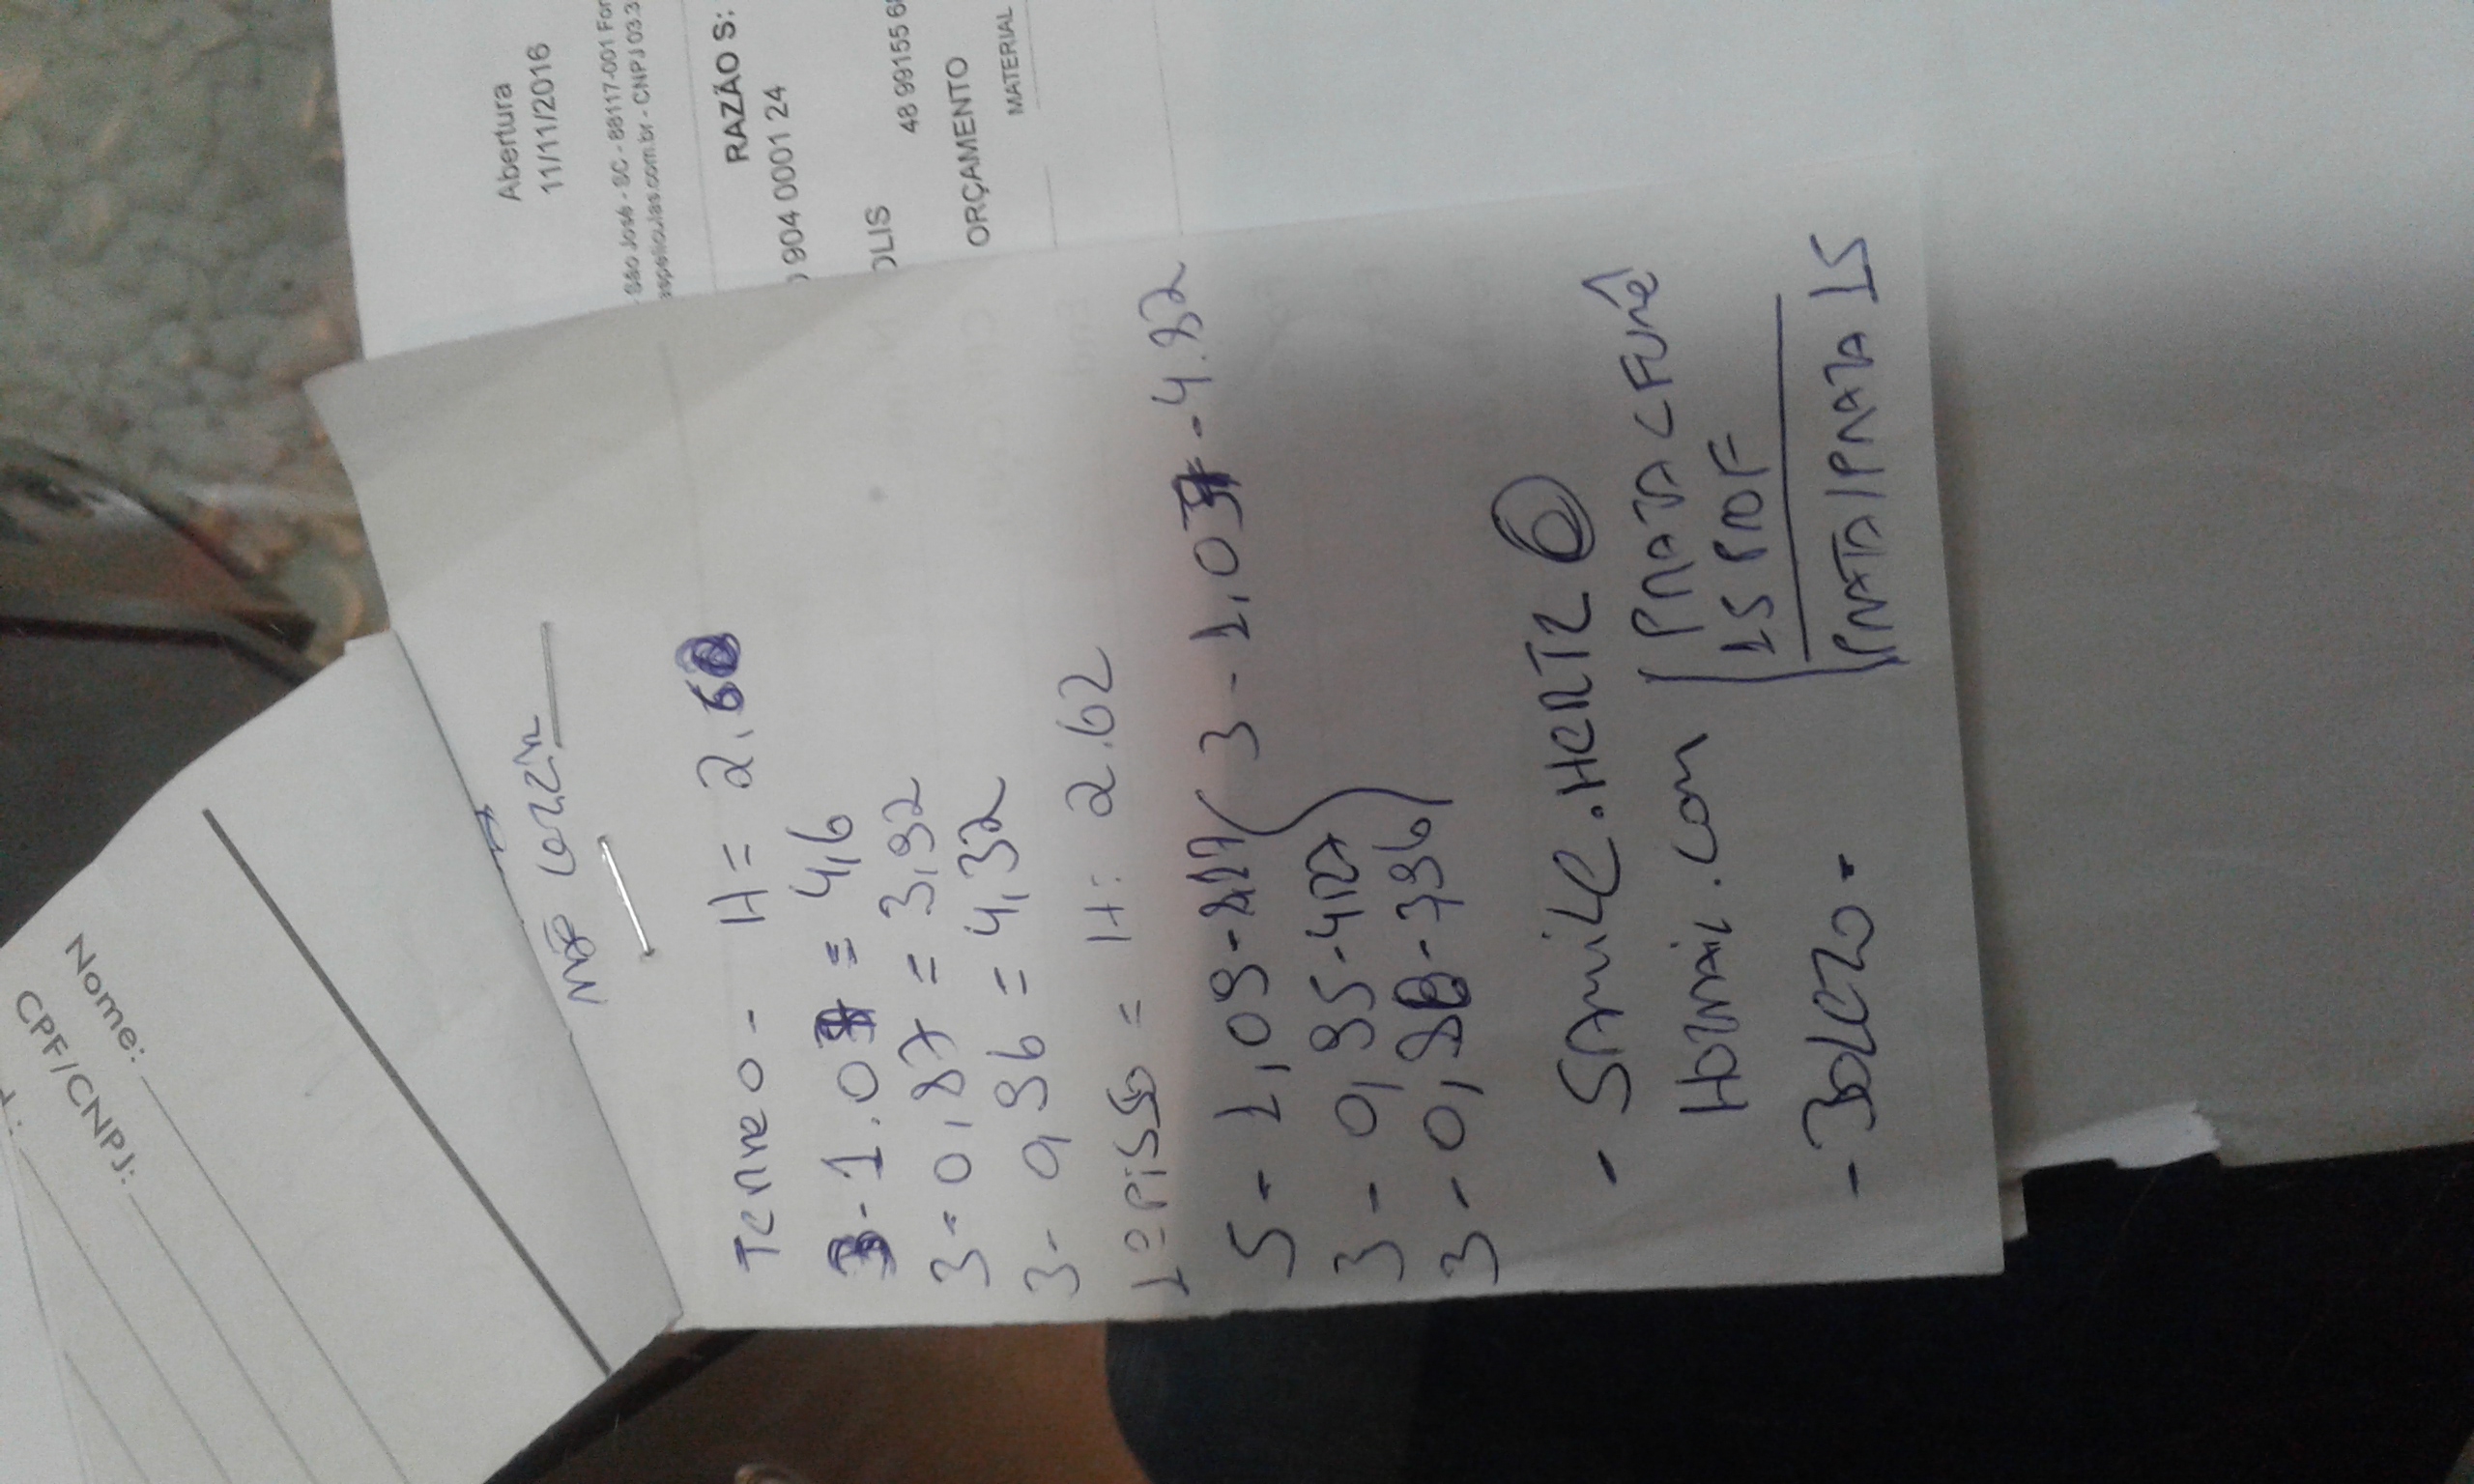 Abertura
11/11/2016
São José - SC - 88117-001 For
aspeliculas.com.br - CNPJ 03.3
RAZÃO S:
904 0001 24
OLIS
48 99155 6
ORÇAMENTO
MATERIAL
Nome:
CPF/CNPJ:
não
Terreo - H = 2.6
3 - 1.07 = 4,6
3 - 0,87 = 3,92
3 - 0,96 = 4,32
1º PISSO = H: 2.62
5 - 1,09 - ( 3 - 1,07 - 4.82
3 - 0,95 - 4,27
3 - 0,88 - 3,96
- SAMILE.HERTZ @
HOTMAIL.COM
PRATA C FUMÊ
15 PROF
- BOLEZO - PRATA/PRATA 15